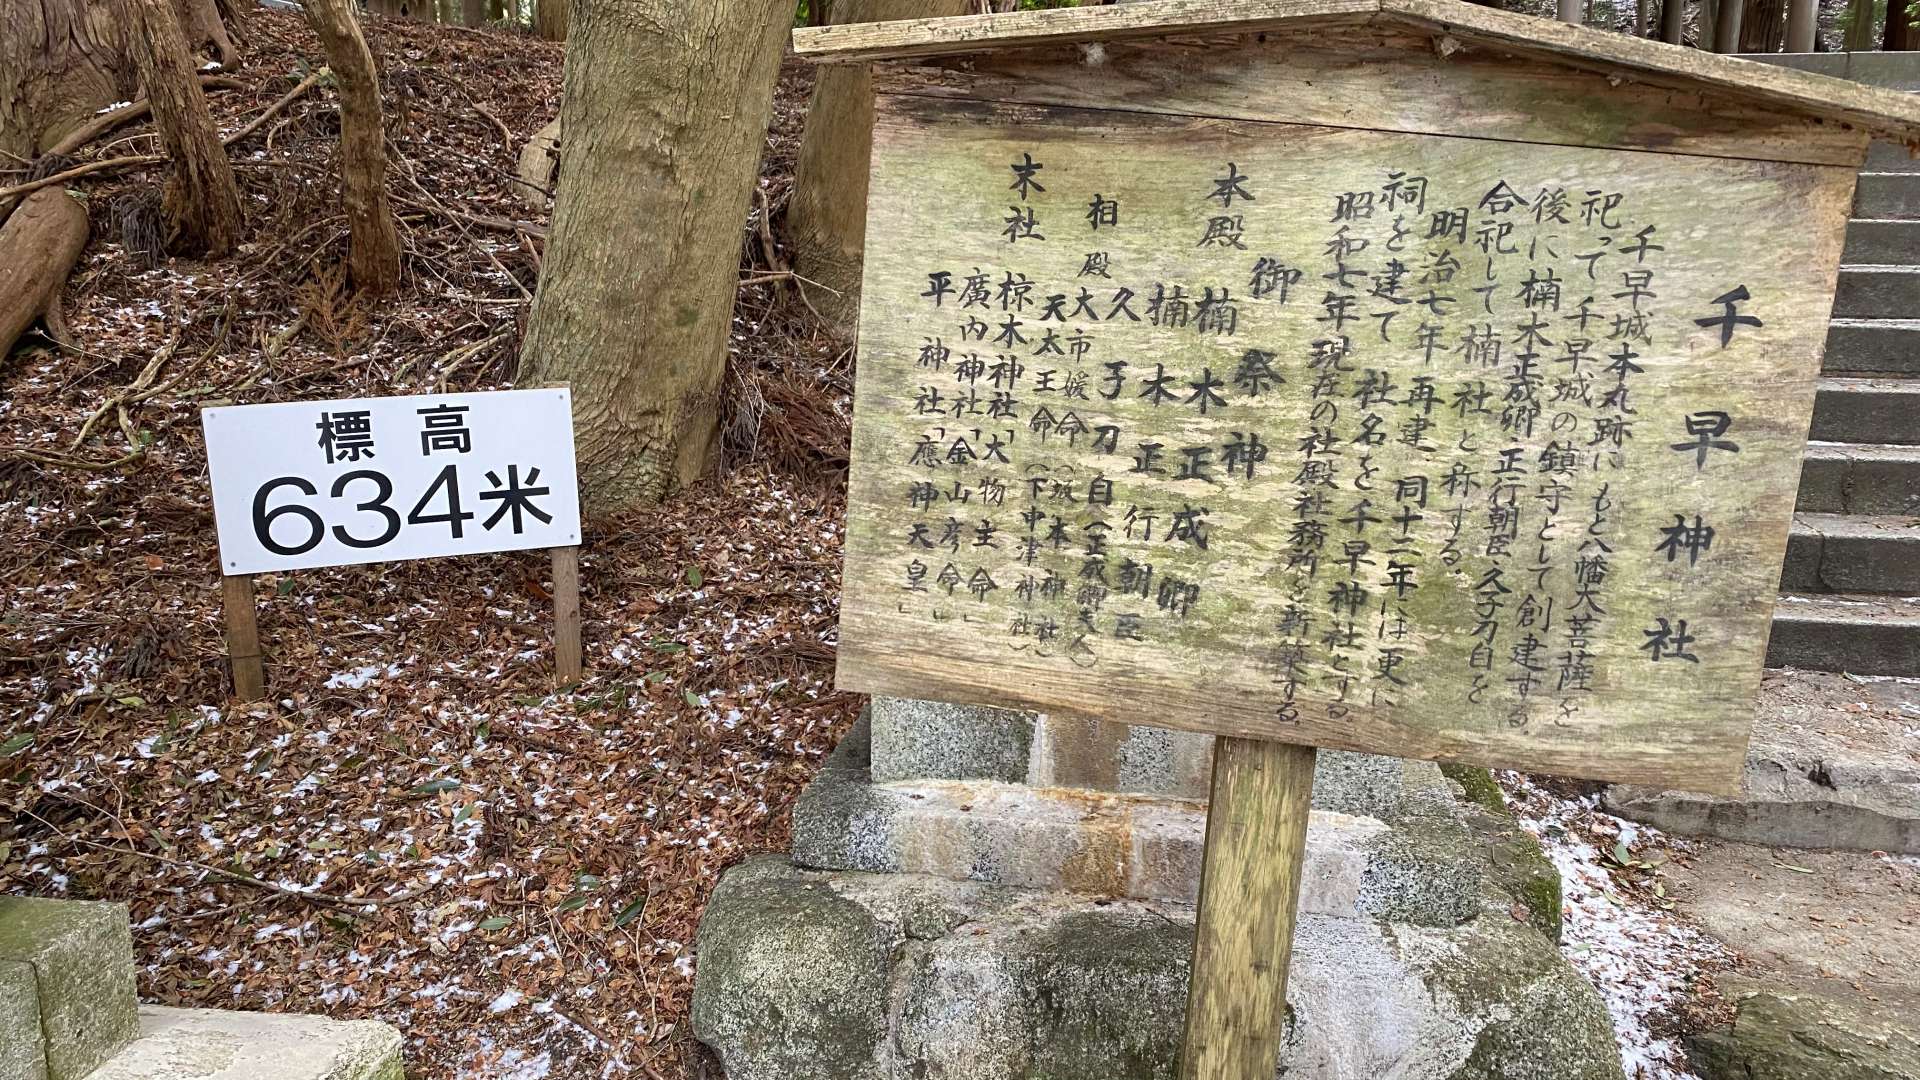 標高
634米
千早神社
千早城本丸跡にもと八幡大菩薩を
祀って千早城の鎮守として創建する
後に楠木正成卿、正行朝臣、久子刀自を
合祀して楠社と称する。
明治七年再建、同十二年には更に
祠を建て社名を千早神社とする
昭和七年現在の社殿社務所を新築する
御祭神
本殿 楠木正成卿
楠木正行朝臣
久子刀自(正成卿夫人)
相殿 大市媛命(坂本神社)
天太王命(下中津神社)
末社 椋木神社「大物主命」
廣内神社「金山彦命」
平神社「應神天皇」